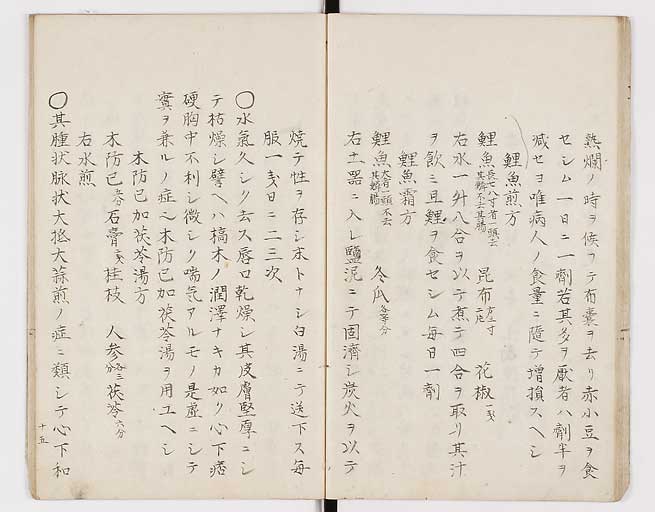 熱爛ノ時ヲ候ヲテ布嚢ヲ去リ赤小豆ヲ食
セシム一日ニ一劑若其多ヲ厭者ハ劑半ヲ
減セヨ唯病人ノ食量ニ隨テ増損スヘシ
鯉魚煎方
鯉魚長七八寸者一頭去其鱗不去其腸 昆布方三寸一片 花椒一戔
右水一升八合ヲ以テ煮テ四合ヲ取リ其汁
ヲ飲ミ且鯉ヲ食セシム毎日一劑
鯉魚霜方
鯉魚大者一頭不去其鱗腸 冬瓜各等分
右土器ニ入レ鹽泥ニテ固濟シ炭火ヲ以テ
焼テ性ヲ存シ末トナシ白湯ニテ送下ス毎
服一戔日ニ二三次
〇水氣久シク去ス唇口乾燥シ其皮膚堅厚ニシ
テ枯燥シ譬ヘハ槁木ノ潤澤ナキカ如ク心下痞
硬胸中不利シ微シク喘氣アルモノ是虚ニシテ
實ヲ兼ルノ症也木防已加茯苓湯ヲ用ユヘシ
木防已加茯苓湯方
木防已 石膏 桂枝 人參 茯苓六分
右水煎
〇其腫状脉状大抵大蒜煎ノ症ニ類シテ心下和
十五